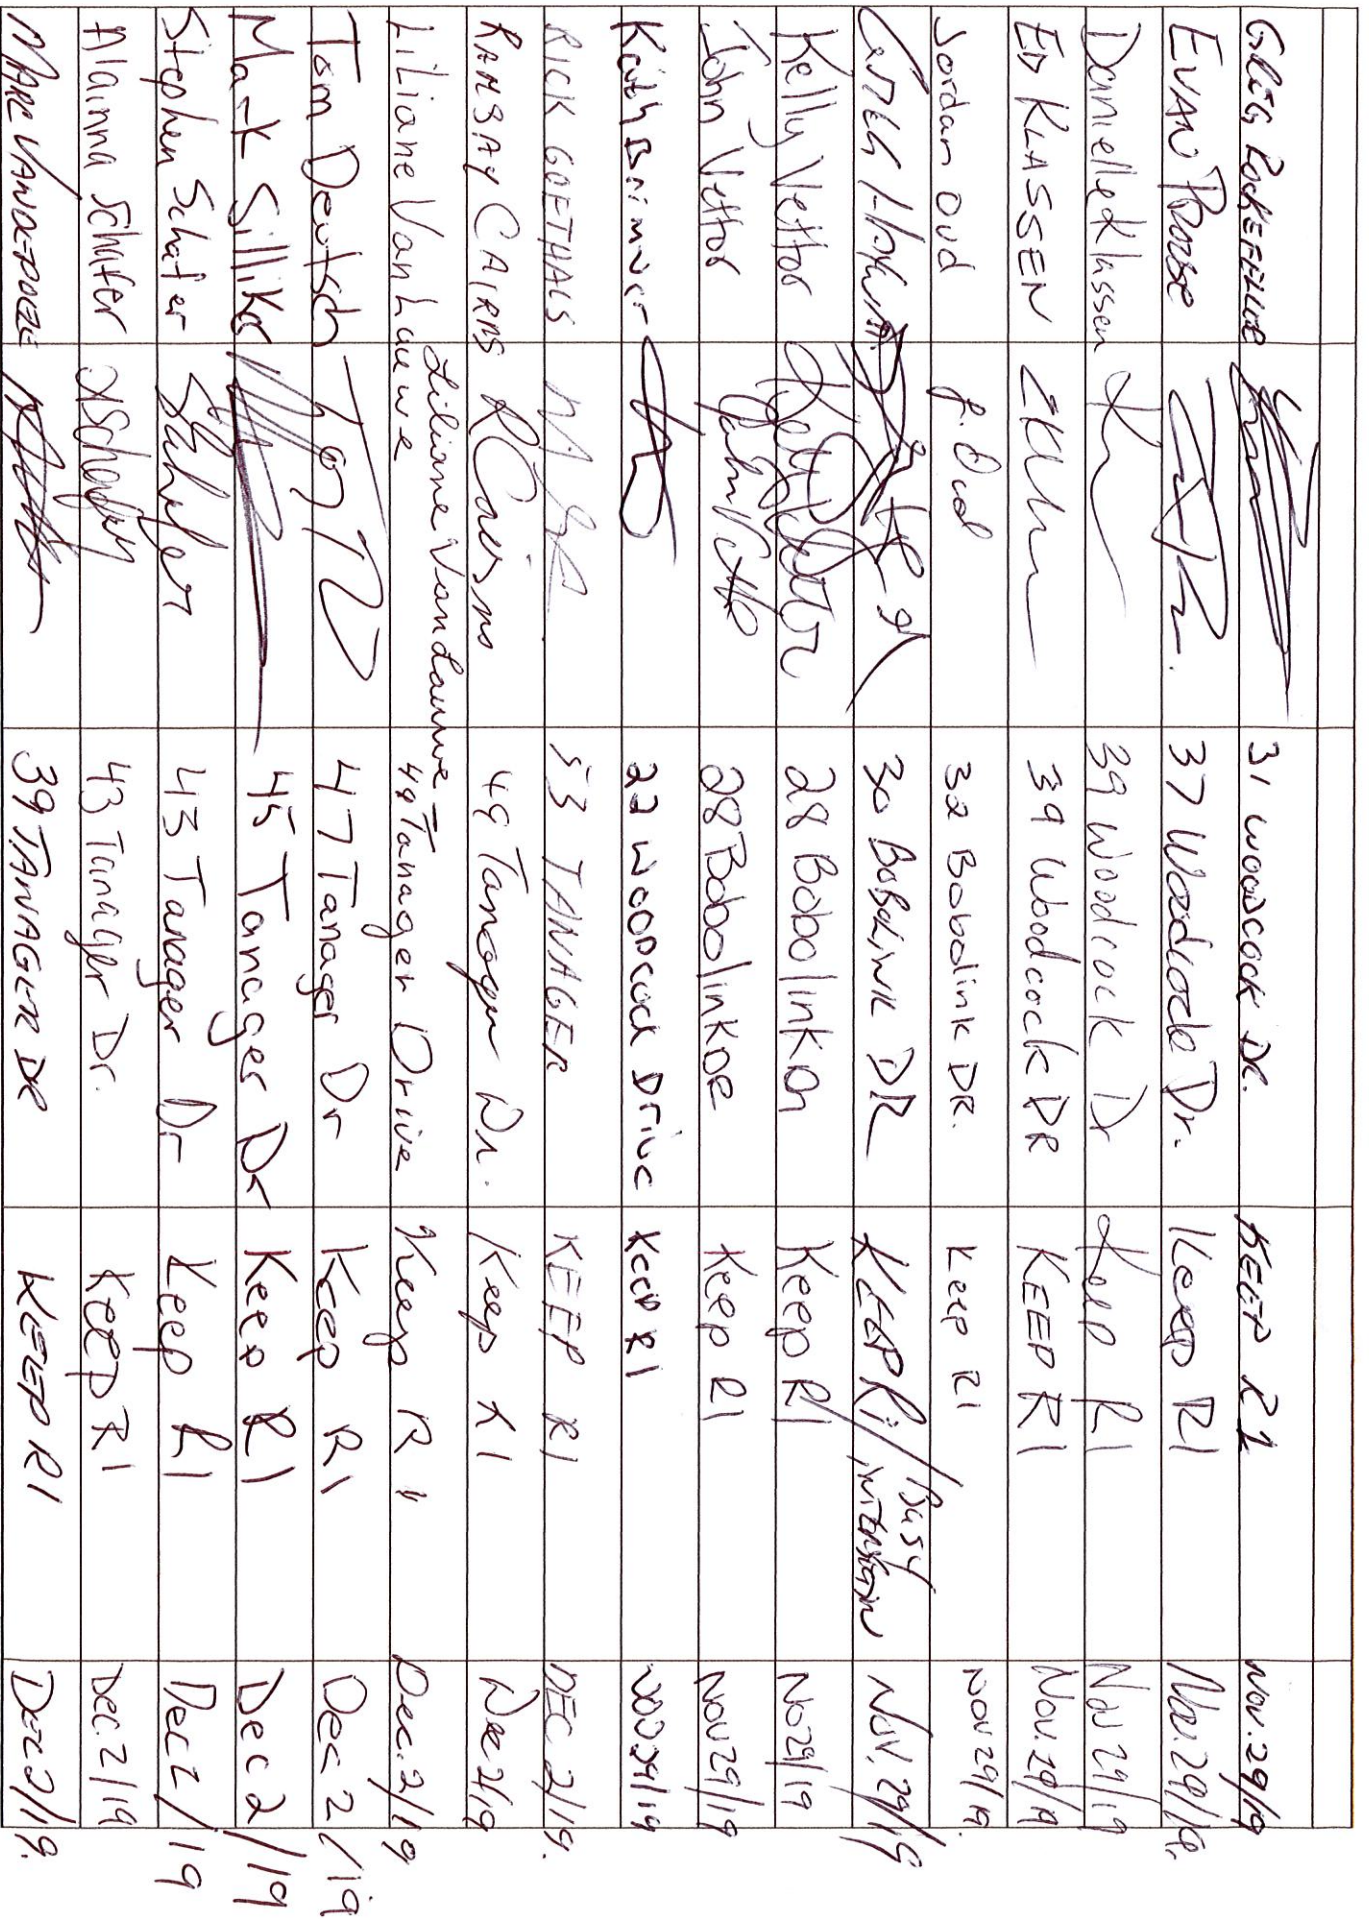 GREG 31 WOODCOCK DR. KEEP R1 Nov. 29/19
EVAN 37 Woodcock Dr. Keep R1 Nov. 29/19.
Danielle Klassen 39 Woodcock Dr Keep R1 Nov 29/19
ED KLASSEN 39 Woodcock DR KEEP R1 Nov. 29/19
Jordan Oud J. Oud 32 Bobolink DR. Keep R1 Nov 29/19.
30 BOBOLINK DR KEEP R1/ Busy Nov. 29/19
Kelly Vettor 28 Bobolink Keep R1 No 29/19
John Vettor 28 Bobolink DR Keep R1 Nov 29/19
Keith 22 WOODCOCK Drive KeeP R1 Nov 29/19
RICK GOETHALS 53 TANAGER KEEP R1 DEC 2/19.
RAMSAY CAIRNS R Cairns 49 Tanager Dr. Keep R1 Dec 2/19
Liliane 49 Tanager Drive Keep R1 Dec. 2/19
Tom Deutsch 47 Tanager Dr Keep R1 Dec 2/19
Mark 45 Tanager Dr Keep R1 Dec 2/19
Stephen Schafer Schafer 43 Tanager Dr Keep R1 Dec 2/19
Alainna Schafer ASchafer 43 Tanager Dr. KEEP R1 Dec. 2/19
MARC 39 TANAGER DR KEEP R1 DEC 2/19.